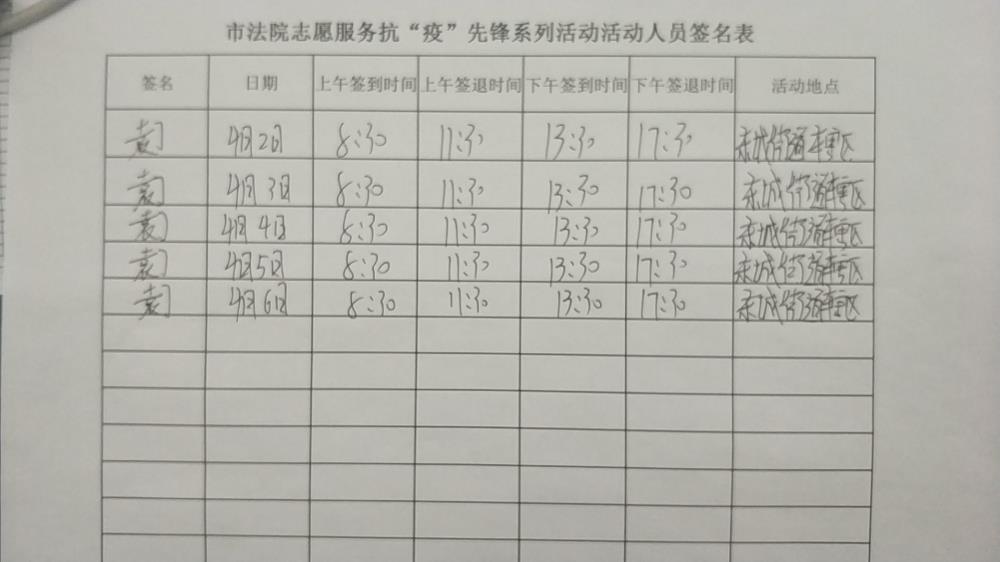 市法院志愿服务抗“疫”先锋系列活动活动人员签名表
签名 日期 上午签到时间 上午签退时间 下午签到时间 下午签退时间 活动地点
袁 4月2日 8:30 11:30 13:30 17:30 京城街道辖区
袁 4月3日 8:30 11:30 13:30 17:30 京城街道辖区
袁 4月4日 8:30 11:30 13:30 17:30 京城街道辖区
袁 4月5日 8:30 11:30 13:30 17:30 京城街道辖区
袁 4月6日 8:30 11:30 13:30 17:30 京城街道辖区